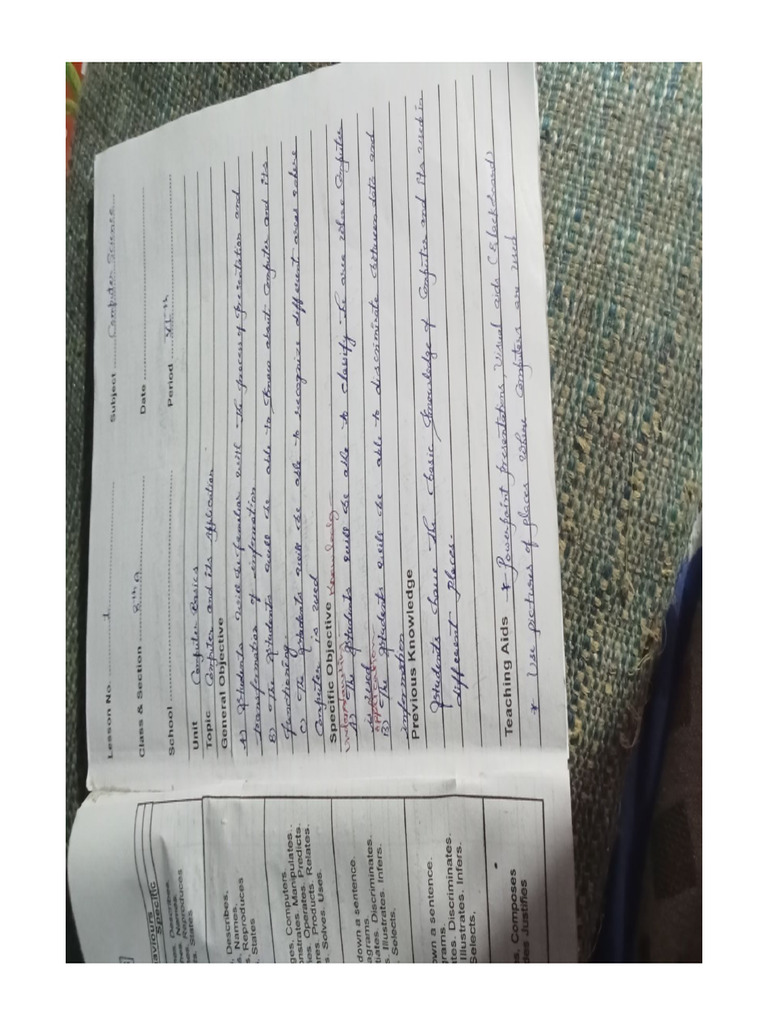 Lesson No. 1 Subject Computer Science
Class & Section 8th A Date
School Period VI th
Unit Computer Basics
Topic Computer and its Application
General Objective
A) Students will be familiar with the process of presentation and
transformation of information
B) The students will be able to know about Computer and its
functioning.
C) The students will be able to recognize different areas where
Computer is used
Specific Objective Knowledge
Understanding
A) The students will be able to classify the area where Computer
is used
Application
B) The students will be able to discriminate between data and
information
Previous Knowledge
Students have the basic knowledge of Computer and its used in
different places.
Teaching Aids * Powerpoint presentations Visual aids (Blackboard)
* Use pictures of places where Computers are used
aviours
Specific
Names.
Reproduces
States
Describes.
Names.
Reproduces
States
ges, Computers.
nstrates. Manipulates.
Operates. Predicts.
Products. Relates.
Solves. Uses.
down a sentence.
grams.
tiates. Discriminates.
Illustrates. Infers.
Selects.
own a sentence.
grams.
ates. Discriminates.
Illustrates. Infers.
Selects.
s, Composes
des Justifies